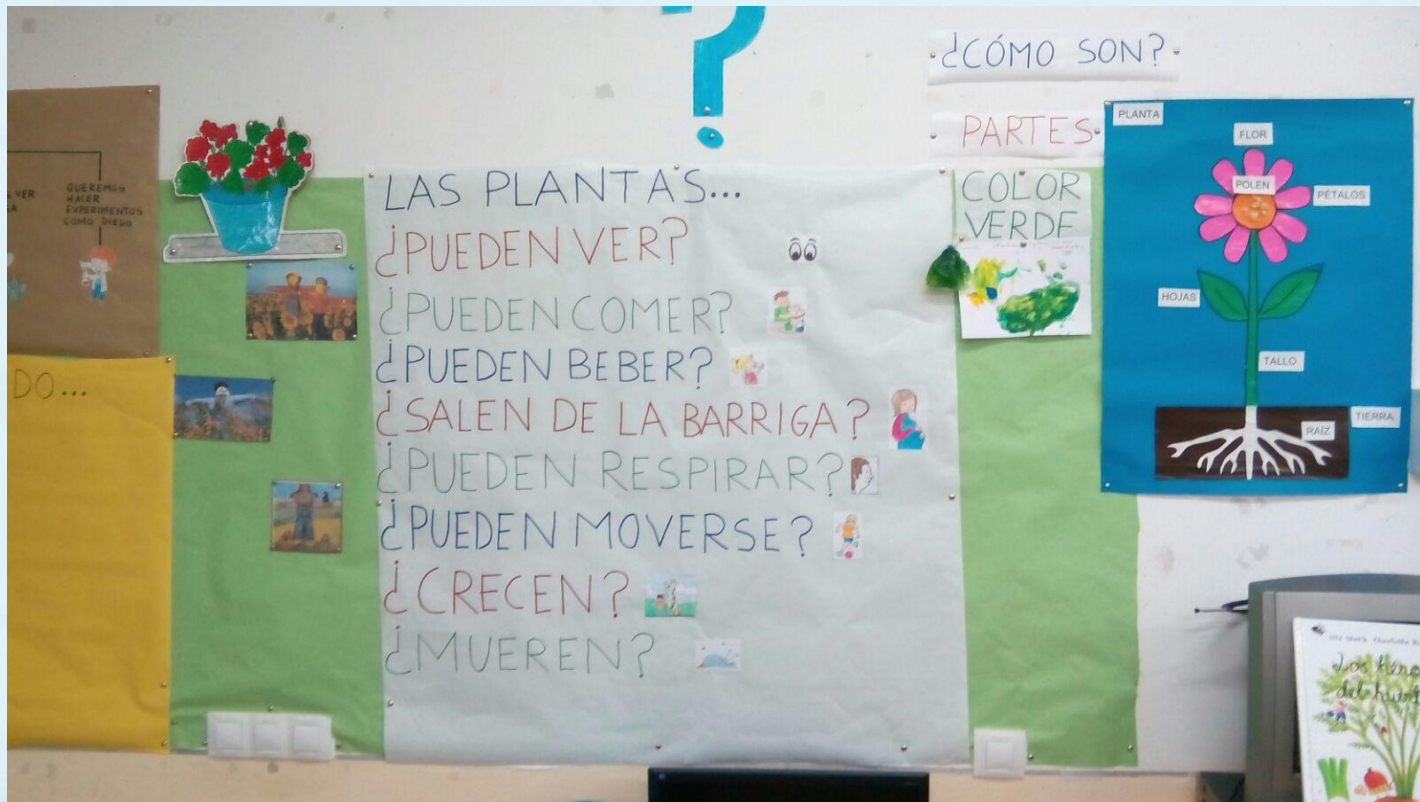 ¿CÓMO SON?
PARTES
VER
QUEREMOS
HACER
EXPERIMENTOS
COMO DIEGO
DO...
LAS PLANTAS...
¿PUEDEN VER?
¿PUEDEN COMER?
¿PUEDEN BEBER?
¿SALEN DE LA BARRIGA?
¿PUEDEN RESPIRAR?
¿PUEDEN MOVERSE?
¿CRECEN?
¿MUEREN?
COLOR
VERDE
PLANTA
FLOR
POLEN
PÉTALOS
HOJAS
TALLO
TIERRA
RAÍZ
Los
del